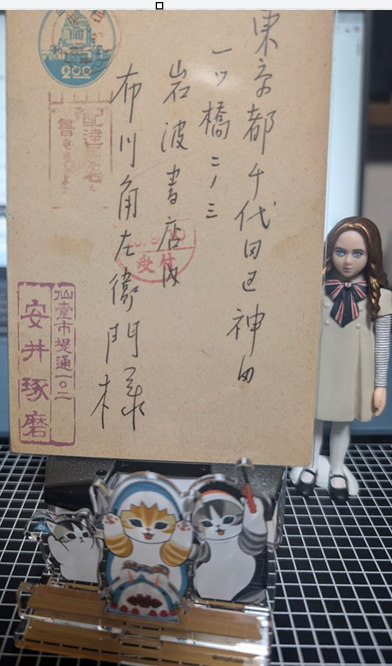 東京都千代田区神田
一ッ橋二ノ三
岩波書店内
布川角左衛門様
2.00
受付
仙臺市堤通一〇二
安井琢磨